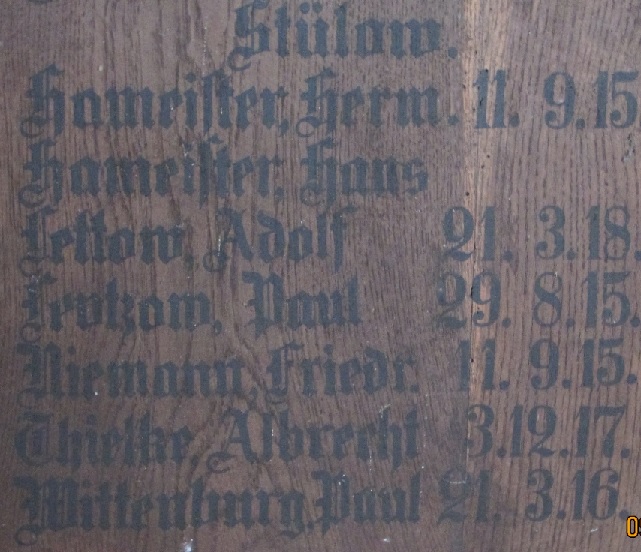 Stülow.
Hameister, Herm. 11. 9.15
Hameister, Hans
Lettow, Adolf 21. 3.18.
Levtzow, Paul 29. 8.15.
Niemann, Friedr. 11. 9.15.
Thielke Albrecht 3.12.17.
Wittenburg, Paul 21. 3.16.